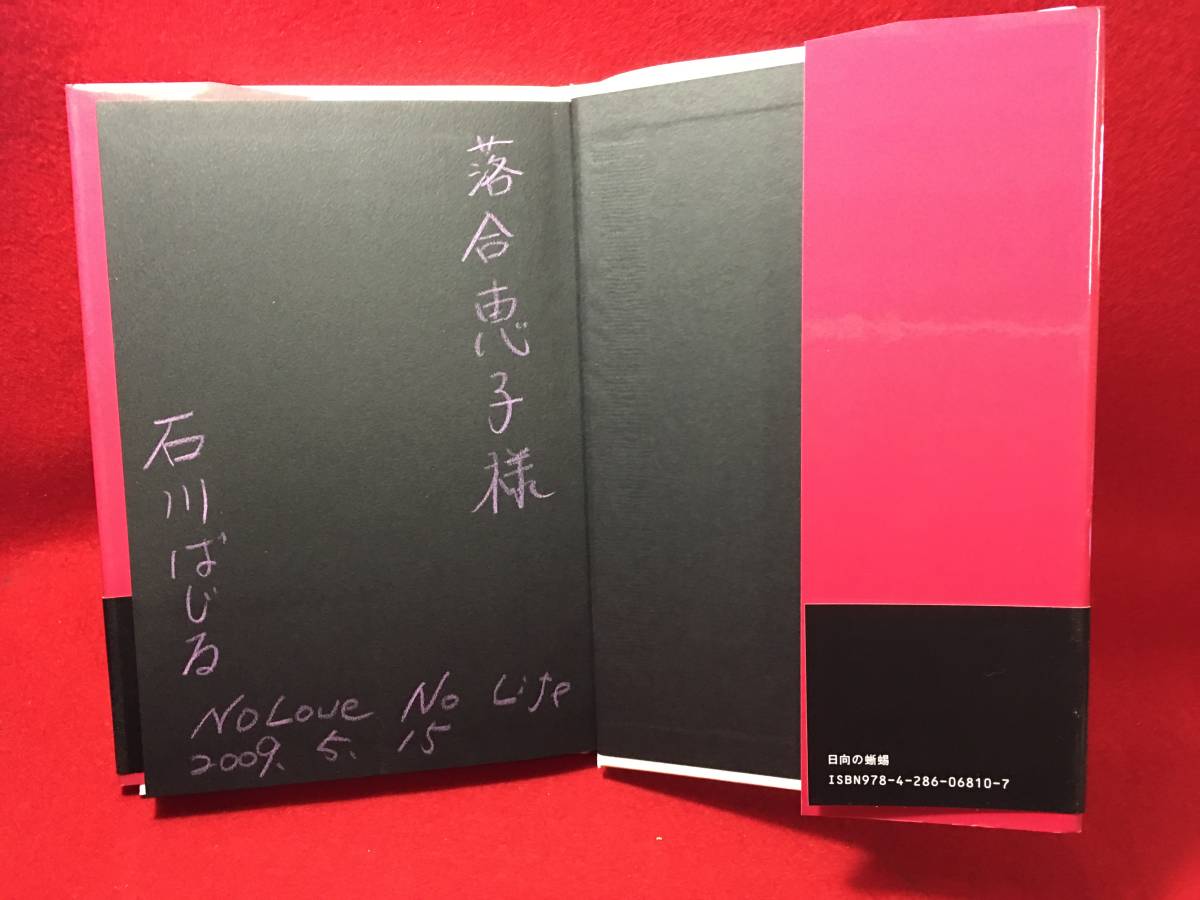 落合恵子様
石川ばじる
No Love No Life
2009. 5. 15
日向の蜥蜴
ISBN978-4-286-06810-7